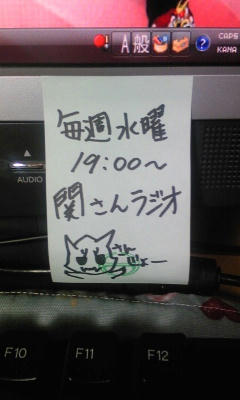 A 般
CAPS
KANA
毎週水曜
19:00～
関さんラジオ
さん
じょー
AUDIO
F10
F11
F12